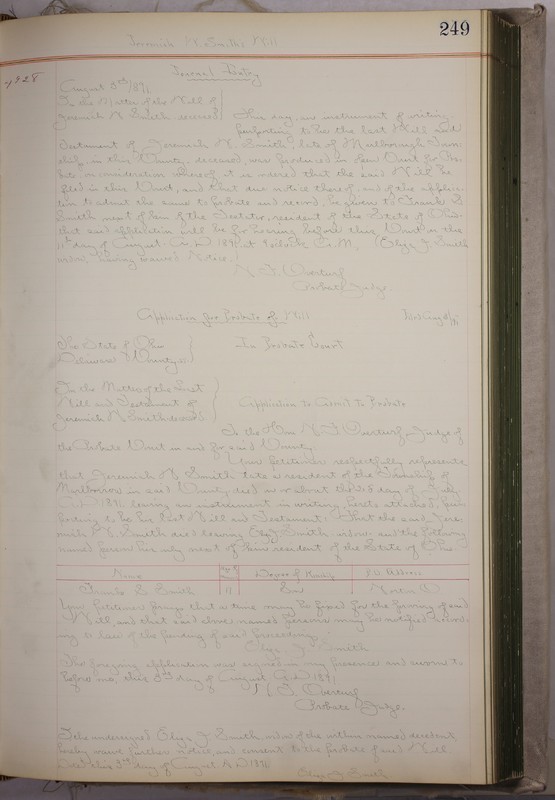 249
Jeremiah N. Smith's Will
Journal Entry
August 3rd 1891
In the Matter of the Will of
Jeremiah N. Smith deceased
This day, an instrument of writing,
purporting to be the last Will and
Testament of Jeremiah N. Smith, late of Marlborough Town-
ship, in this County, deceased, was produced in Open Court for Pro-
bate, on consideration whereof, it is ordered that the said Will be
filed in this Court, and that due notice thereof, and of the applica-
tion to admit the same to probate and record, be given to Frank S.
Smith next of kin of the Testator, resident of the State of Ohio
that said application will be for hearing before this Court on the
11th day of August A.D. 1891 at o'clock M, Eliza J. Smith
widow, having waived Notice.
N. T. Overturf
Probate Judge.
Application for Probate of Will
The State of Ohio
Delaware County ss
In Probate Court
In the Matter of the Last
Will and Testament of
Jeremiah N. Smith deceased
Application to Admit to Probate
To the Hon. N. T. Overturf, Judge of
the Probate Court in and for said County.
Your petitioner respectfully represents
that Jeremiah N. Smith late a resident of the Township of
Marlborough in said County died on or about the 25 day of July
A.D. 1891 leaving an instrument in writing, hereto attached, pur-
porting to be his last Will and Testament; that the said Jere-
miah N. Smith died leaving Eliza J. Smith widow and the following
named person his only next of kin resident of the State of Ohio.
Name Degree of Kinship P.O. Address
Smith Son Norton O.
Your petitioner prays that a time may be fixed for the proving of said
Will, and that said above named persons may be notified accord-
ing to law of the pending of said proceeding.
Eliza J. Smith
The foregoing application was signed in my presence and sworn to
before me, this 3rd day of August A.D. 1891
N. T. Overturf
Probate Judge.
I the undersigned Eliza J. Smith widow of the within named decedent
hereby waive further notice, and consent to the probate of said Will
this 3rd day of August A.D. 1891
Eliza J. Smith